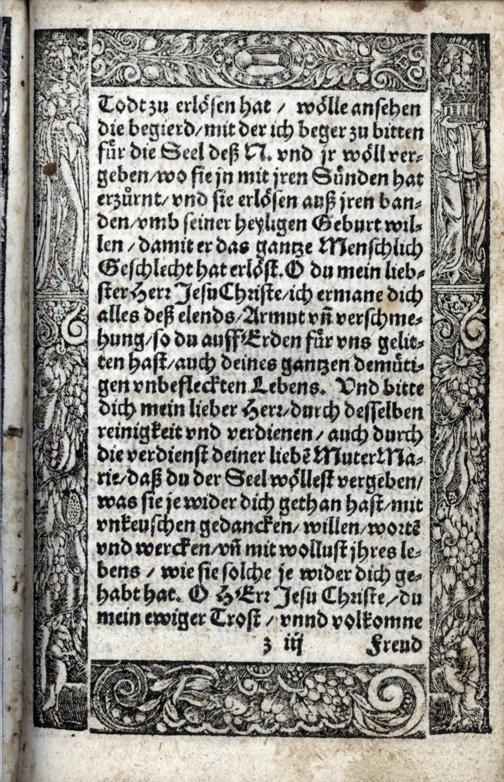 Todt zu erlösen hat / wölle ansehen
die begierd / mit der ich beger zu bitten
für die Seel deß N. vnd jr wöll ver⸗
geben / wo sie jn mit jren Sünden hat
erzürnt / vnd sie erlösen auß jren ban⸗
den / vmb seiner heyligen Geburt wil⸗
len / damit er das gantze Menschlich
Geschlecht hat erlöst. O du mein lieb⸗
ster Herr Jesu Christe / ich ermane dich
alles deß elends / Armut vñ verschme⸗
hung / so du auff Erden für vns gelit⸗
ten hast / auch deines gantzen demüti⸗
gen vnbefleckten Lebens. Vnd bitte
dich mein lieber Herr / durch desselben
reinigkeit vnd verdienen / auch durch
die verdienst deiner liebē Muter Ma⸗
rie / daß du der Seel wöllest vergeben /
was sie je wider dich gethan hast / mit
vnkeuschen gedancken / willen / wortē
vnd wercken / vñ mit wollust jhres le⸗
bens / wie sie solche je wider dich ge⸗
habt hat. O HErr Jesu Christe / du
mein ewiger Trost / vnnd volkomne
z iij Freud